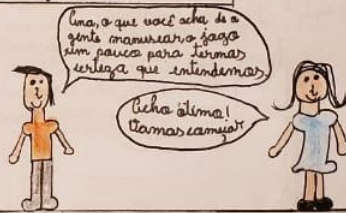 Ana, o que você acha de a
gente manusear o jogo
um pouco para termos
certeza que entendemos.
Acho ótimo!
Vamos começar